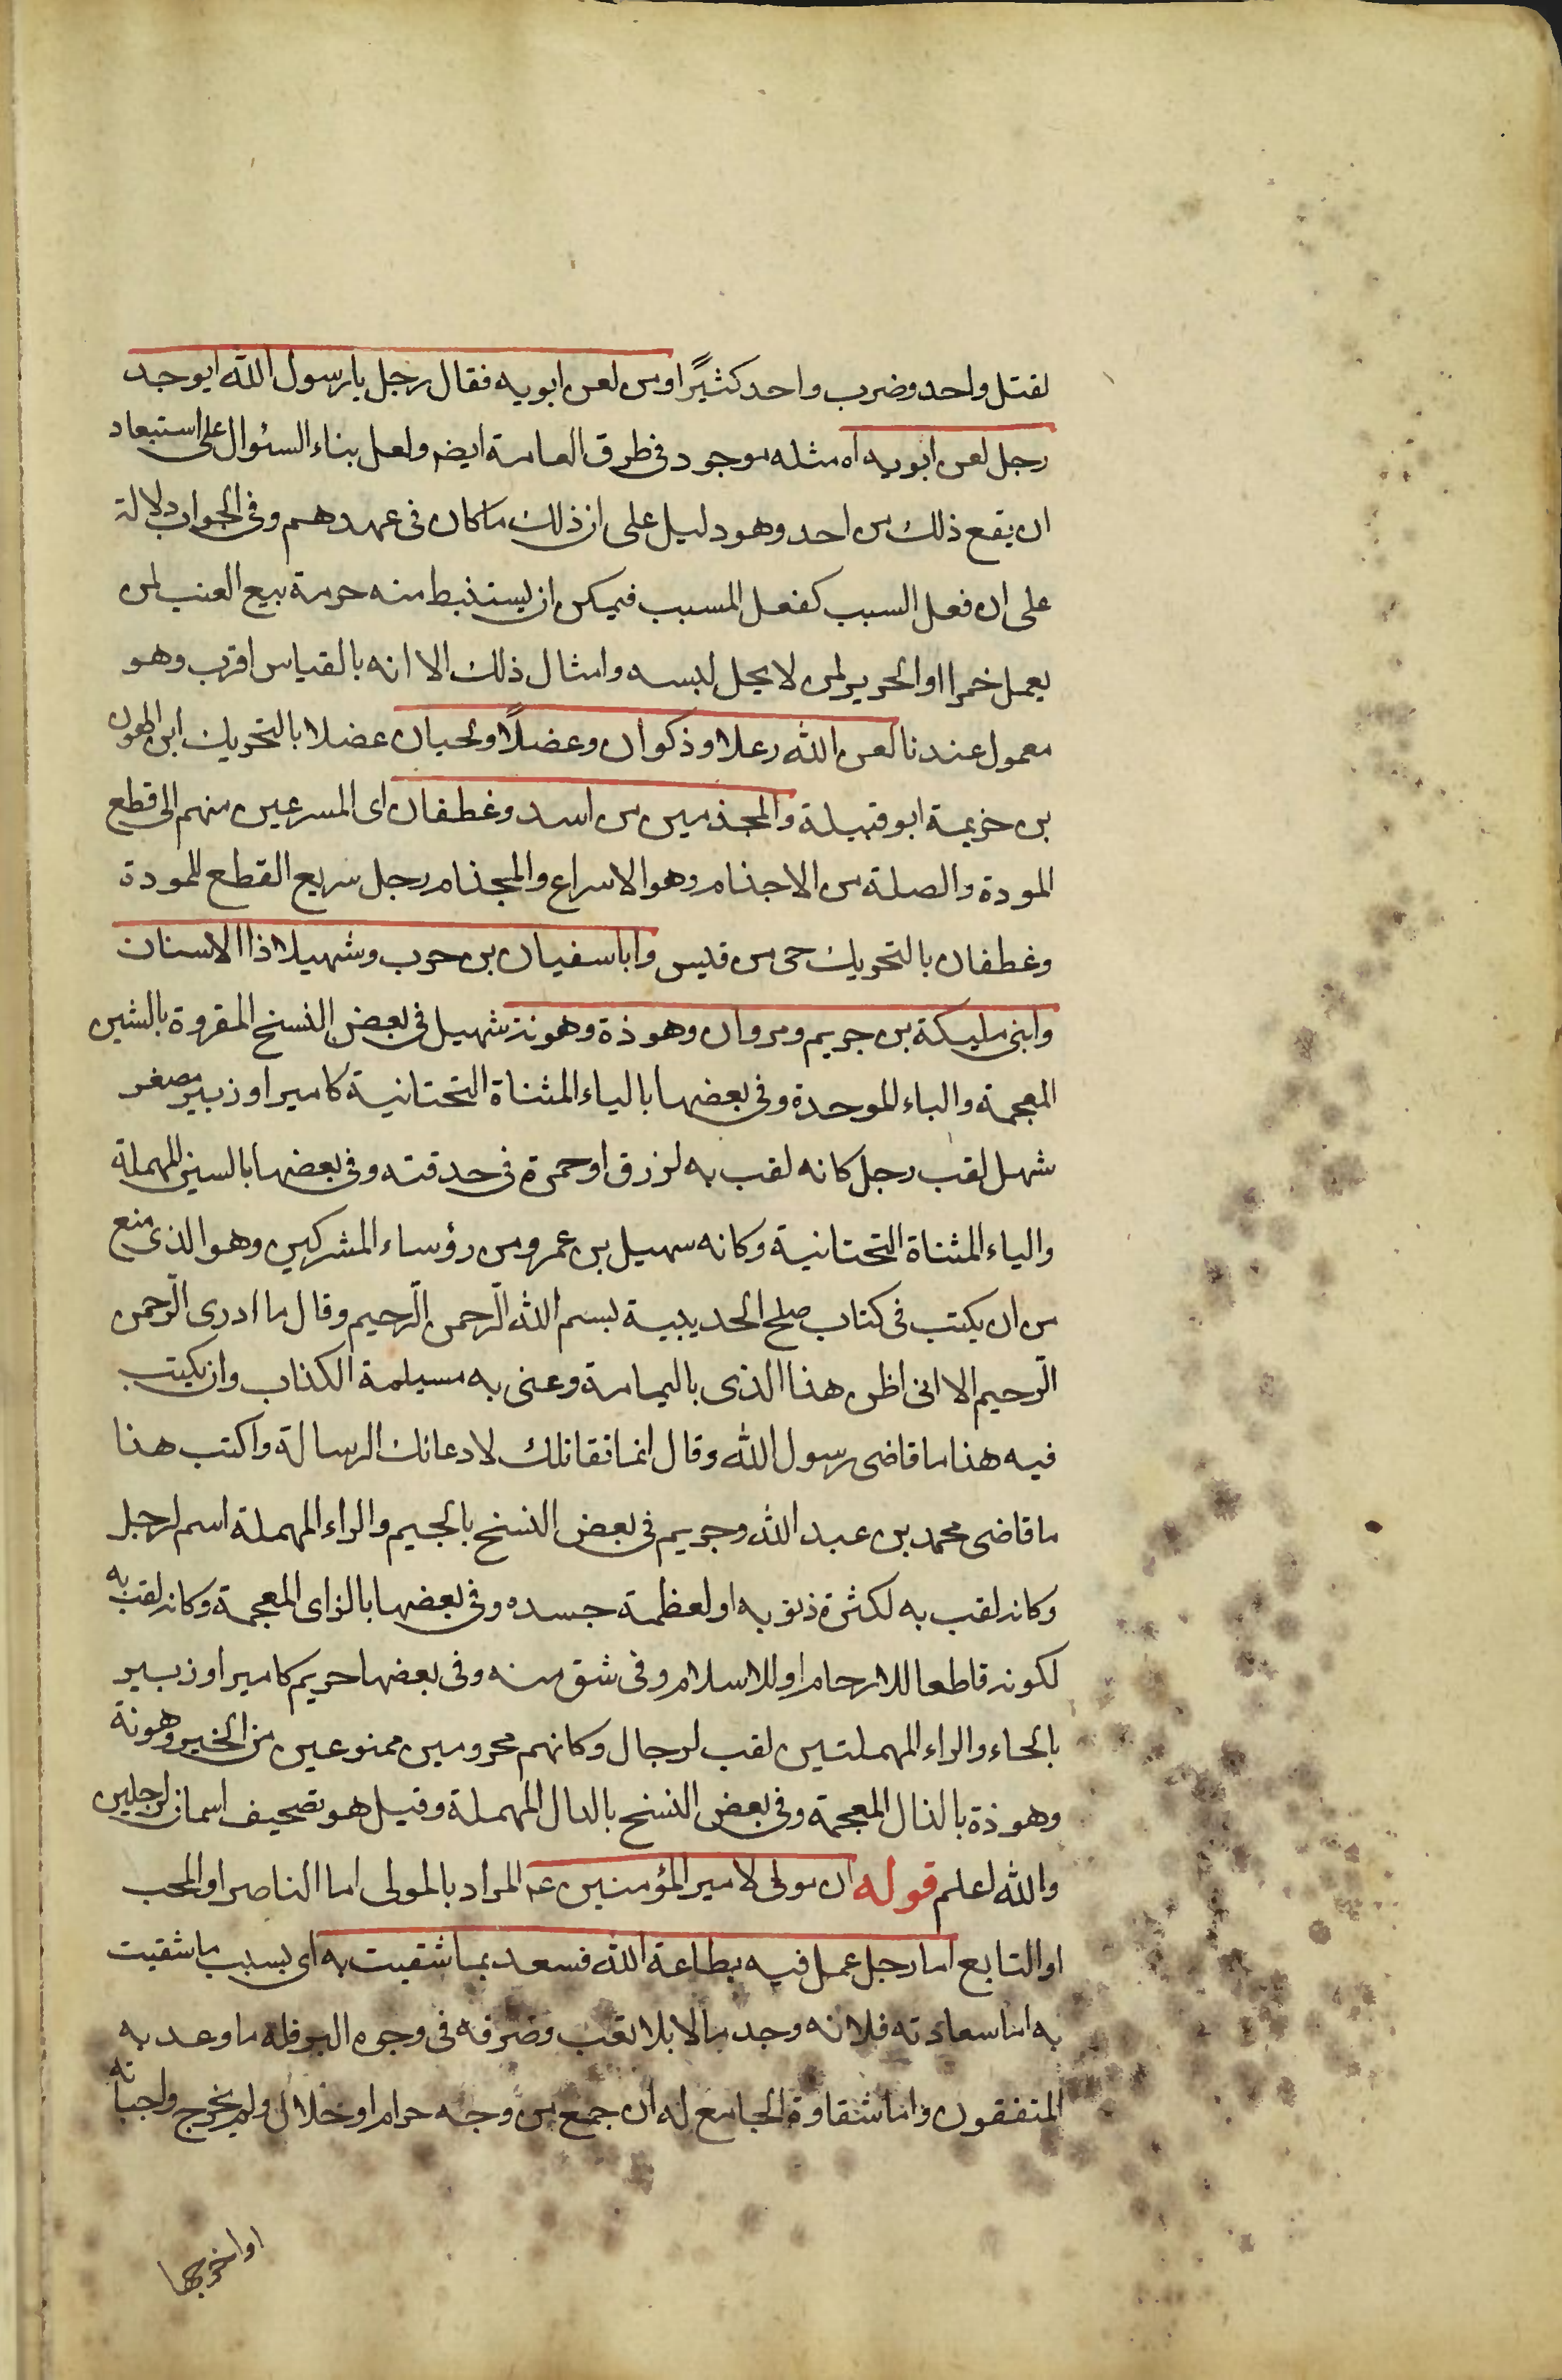 لقتل واحد وضرب واحد كثيرًا ومن لعن ابويه فقال رجل يا رسول الله ايوجد
رجل لعن ابويه اه مثله موجود فى طرق العامة ايضا ولعل بناء السئوال على استبعاد
ان يقع ذلك من احد وهو دليل على ان ذلك ما كان فى عهدهم وفى الجواب دلالة
على ان فعل السبب كفعل المسبب فيمكن ان يستنبط منه حرمة بيع العنب لمن
يعمل خمرا او الحرير لمن لا يحل لبسه وامثال ذلك الا انه بالقياس اقرب وهو
معمول عندنا لعن الله رعلا وذكوان وعضلًا ولحيان عضلا بالتحريك ابن الهون
بن خزيمة ابو قبيلة والمجذمين من اسد وغطفان اى المسرعين منهم الى قطع
المودة والصلة من الاجذام وهو الاسراع والمجذام رجل سريع القطع للمودة
وغطفان بالتحريك حى من قيس وابا سفيان بن حرب وشهيلا ذا الاسنان
وابنى مليكة بن جريم ومروان وهوذة وهونة شهيل فى بعض النسخ المقروة بالشين
المعجمة والباء الموحدة وفى بعضها بالياء المثناة التحتانية كامير او زبير مصغر
شهل لقب رجل كانه لقب به لزرق او حمرة فى حدقته وفى بعضها بالسين المهملة
والياء المثناة التحتانية وكانه سهيل بن عمرو من رؤساء المشركين وهو الذى منع
من ان يكتب فى كتاب صلح الحديبية بسم الله الرّحمن الرّحيم وقال ما ادرى الرّحمن
الرّحيم الا انى اظن هذا الذى باليمامة وعنى به مسيلمة الكذاب وان يكتب
فيه هذا ما قاضى رسول الله وقال انما نقاتلك لادعائك الرسالة واكتب هذا
ما قاضى محمد بن عبد الله وجريم فى بعض النسخ بالجيم والراء المهملة اسم لرجل
وكانه لقب به لكثرة ذنوبه او لعظمة جسده وفى بعضها بالزاى المعجمة وكانه لقب به
لكونه قاطعا للارحام او للاسلام وفى شق منه وفى بعضها حريم كامير او زبير
بالحاء والراء المهملتين لقب لرجال وكانهم محرومين ممنوعين من الخير وهونة
وهوذة بالذال المعجمة وفى بعض النسخ بالدال المهملة وقيل هو تصحيف اسمان لرجلين
والله اعلم قوله ان مولى لامير المؤمنين عه المراد بالمولى اما الناصر او المحب
او التابع اما رجل عمل فيه بطاعة الله فسعد بما شقيت به اى بسبب ما شقيت
به اما سعادته فلانه وجد مالا بلا تعب وصرفه فى وجوه البر فله ما وعد به
المتفقون واما شقاوة الجامع له ان جمع من وجه حرام او حلال ولم يخرج واجباته
او اخرجها